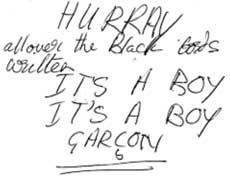 HURRAY
all over the Black
written
IT'S A BOY
IT'S A BOY
GARCON
6